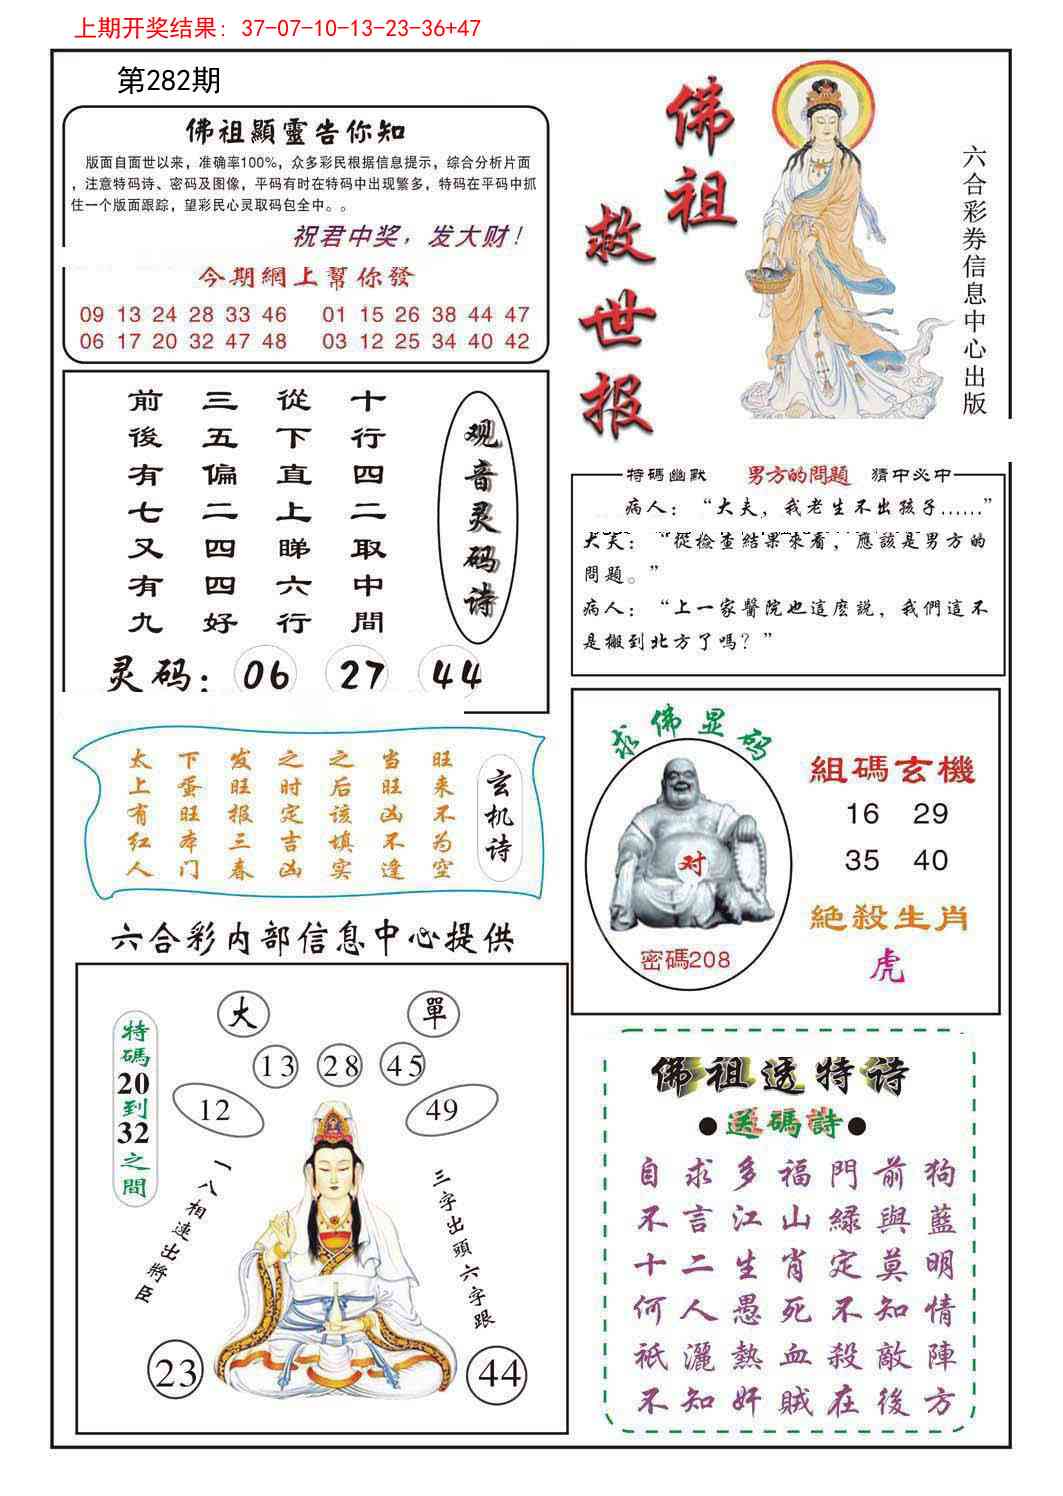 上期开奖结果：37-07-10-13-23-36+47
第282期
佛祖顯靈告你知
版面自面世以来，准确率100%，众多彩民根据信息提示，综合分析片面
，注意特码诗、密码及图像，平码有时在特码中出现繁多，特码在平码中抓
住一个版面跟踪，望彩民心灵取码包全中。。
祝君中奖，发大财！
今期網上幫你發
09 13 24 28 33 46 01 15 26 38 44 47
06 17 20 32 47 48 03 12 25 34 40 42
佛祖
救世报
六合彩券信息中心出版
前三從十
後五下行
有偏直四
七二上二
又四睇取
有四六中
九好行間
观音灵码诗
灵码：06 27 44
特碼幽默 男方的問題 猜中必中
病人：“大夫，我老生不出孩子……”
大夫：“從檢查結果來看，應該是男方的
問題。”
病人：“上一家醫院也這麽説，我們這不
是搬到北方了嗎？”
太下发之之当旺
上蛋旺时后旺来
有旺报定该凶不
红本三吉填不为
人门春凶实逢空
玄机诗
求佛显码
对
密碼208
組碼玄機
16 29
35 40
絕殺生肖
虎
六合彩内部信息中心提供
特碼20到32之間
大 單
13 28 45
12 49
一八相連出將臣
三字出頭六字跟
23 44
佛祖透特诗
●送碼詩●
自求多福門前狗
不言江山緑與藍
十二生肖定莫明
何人愚死不知情
衹灑熱血殺敵陣
不知奸賊在後方